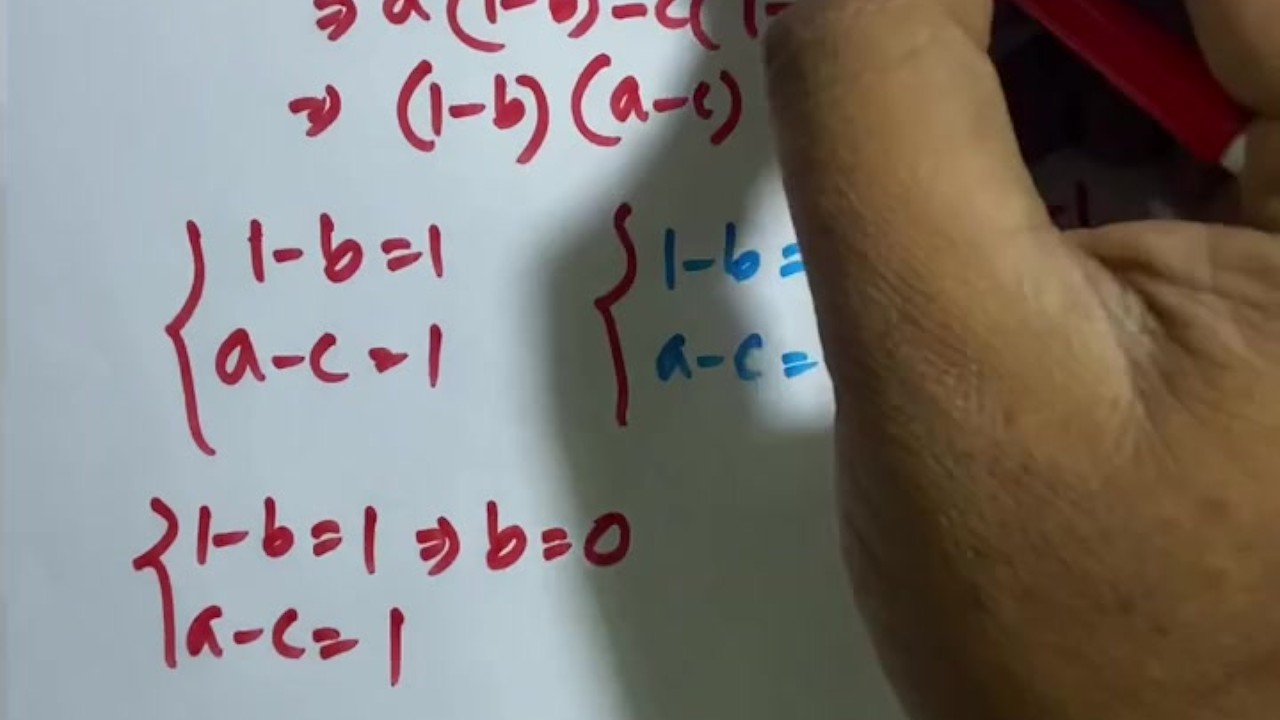 ⇒ a(1-b)-c(1-
⇒ (1-b)(a-c)
1-b=1 1-b=
a-c=1 a-c=
1-b=1 ⇒ b=0
a-c=1